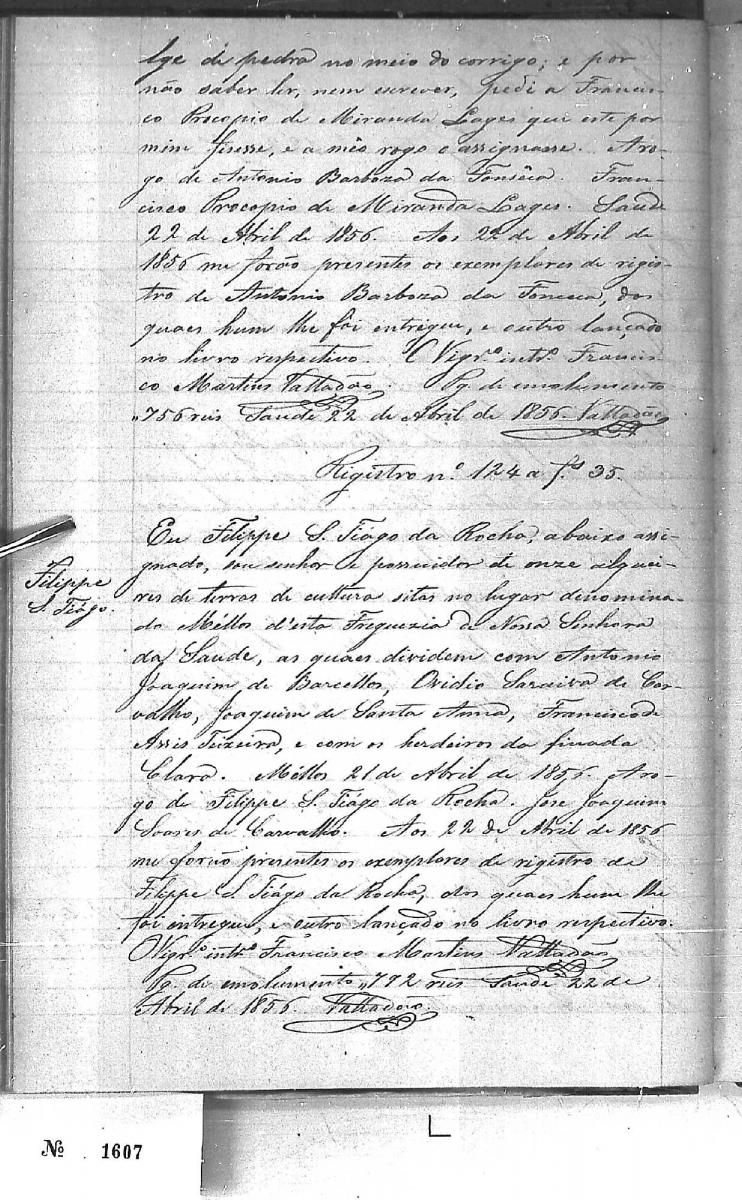 lge de pedra no meio do corrigo; e por
não saber ler, nem escrever, pedi a Francis-
co Procopio de Miranda Lages que este por
mim fizesse, e a mêo rogo o assignasse. Aro-
go de Antonio Barboza da Fonsêca. Fran-
cisco Procopio de Miranda Lages. Saude
22 de Abril de 1856. Aos 22 de Abril de
1856 me forão presentes os exemplares de regis-
tro de Antonio Barboza da Fonseca, dos
quaes hum lhe foi entregue, e outro lançado
no livro respectivo. O Vigrº intrº Francis-
co Martins Valladão. Pg. de emolumento
"756 reis Saude 22 de Abril de 1856 Valladão
Registro nº 124 a fs 35.
Filippe
S. Tiágo.
Eu Filippe S. Tiágo da Rocha, abaixo assi-
gnado, sou senhor e possuidor de onze alquei-
res de terras de cultura sitas no lugar denomina-
do Méllos d'esta Freguezia de Nossa Senhora
da Saude, as quaes dividem com Antonio
Joaquim de Barcellos, Ovidio Saraiva de Car-
valho, Joaquim de Santa Anna, Francisco de
Assis Teixeira, e com os herdeiros da finada
Clara. Méllos 21 de Abril de 1856. Aro-
go de Filippe S. Tiágo da Rocha. Jose Joaquim
Soares de Carvalho. Aos 22 de Abril de 1856
me forão presentes os exemplares de registro de
Filippe S. Tiágo da Rocha, dos quaes hum lhe
foi entregue, e outro lançado no livro respectivo.
O Vigrº intrº Francisco Martins Valladão
Pg. de emolumento "792 reis Saude 22 de
Abril de 1856. Valladão
№ 1607